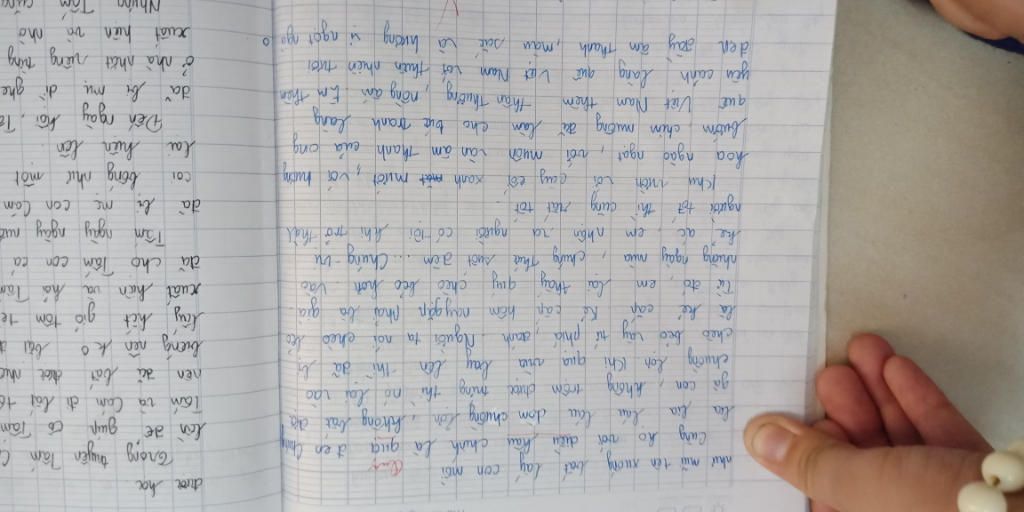 như mũi tên xuống bắt lấy con mồi
Cùng họ với diều hâu chính là quạ đen chúng
lia lia láu láu dòm chuồng lợn, không bắt được
gà con, không trộm được trứng thì nó lại vào
chuồng lợn khi quạ vừa bay lên thì đã bị
chèo bẻo vây tứ phía, đánh. Người ta nói chèo bẻo
là kẻ cắp. Kẻ cắp hôm nay gặp phải bà già
Từ đó, em lại thấy quý chèo bẻo hơn. Vào
những ngày mùa, chúng thức suốt đêm... Chúng
kẻ ác, em nhận ra người có tội khi trở thành
người tốt thì cũng rất tốt
Khu vườn với cây cối xanh mướt, với hương
hoa ngào ngạt, với muôn vàn âm thanh của ong
bướm chim muông đã làm cho bức tranh làng
quê Việt Nam thêm thân thương, nồng ấm Em thêm
yêu cảnh làng quê Việt Nam với thiên nhiên tươi
đẹp đầy âm thanh, màu sắc và hương vị ngọt ngào
được
Trong truyện Tấm
lên để giúp cô Tấm
Tấm và Cám đi bắt té
nên đã bắt được
bướng nên
lấy hết giỏ tôm té
xuất hiện và hỏi Tấm
đã cho Tấm con cá
Tấm ngày ngày
đã bị mẹ con Cám
coi bống như một
lại hiện lên
Đến ngày hội, Tấ
đã bị mụ dì ghẻ
ở nhà nhặt riêng từng
xuất hiện và nhờ
Nhưng Tấm cũng